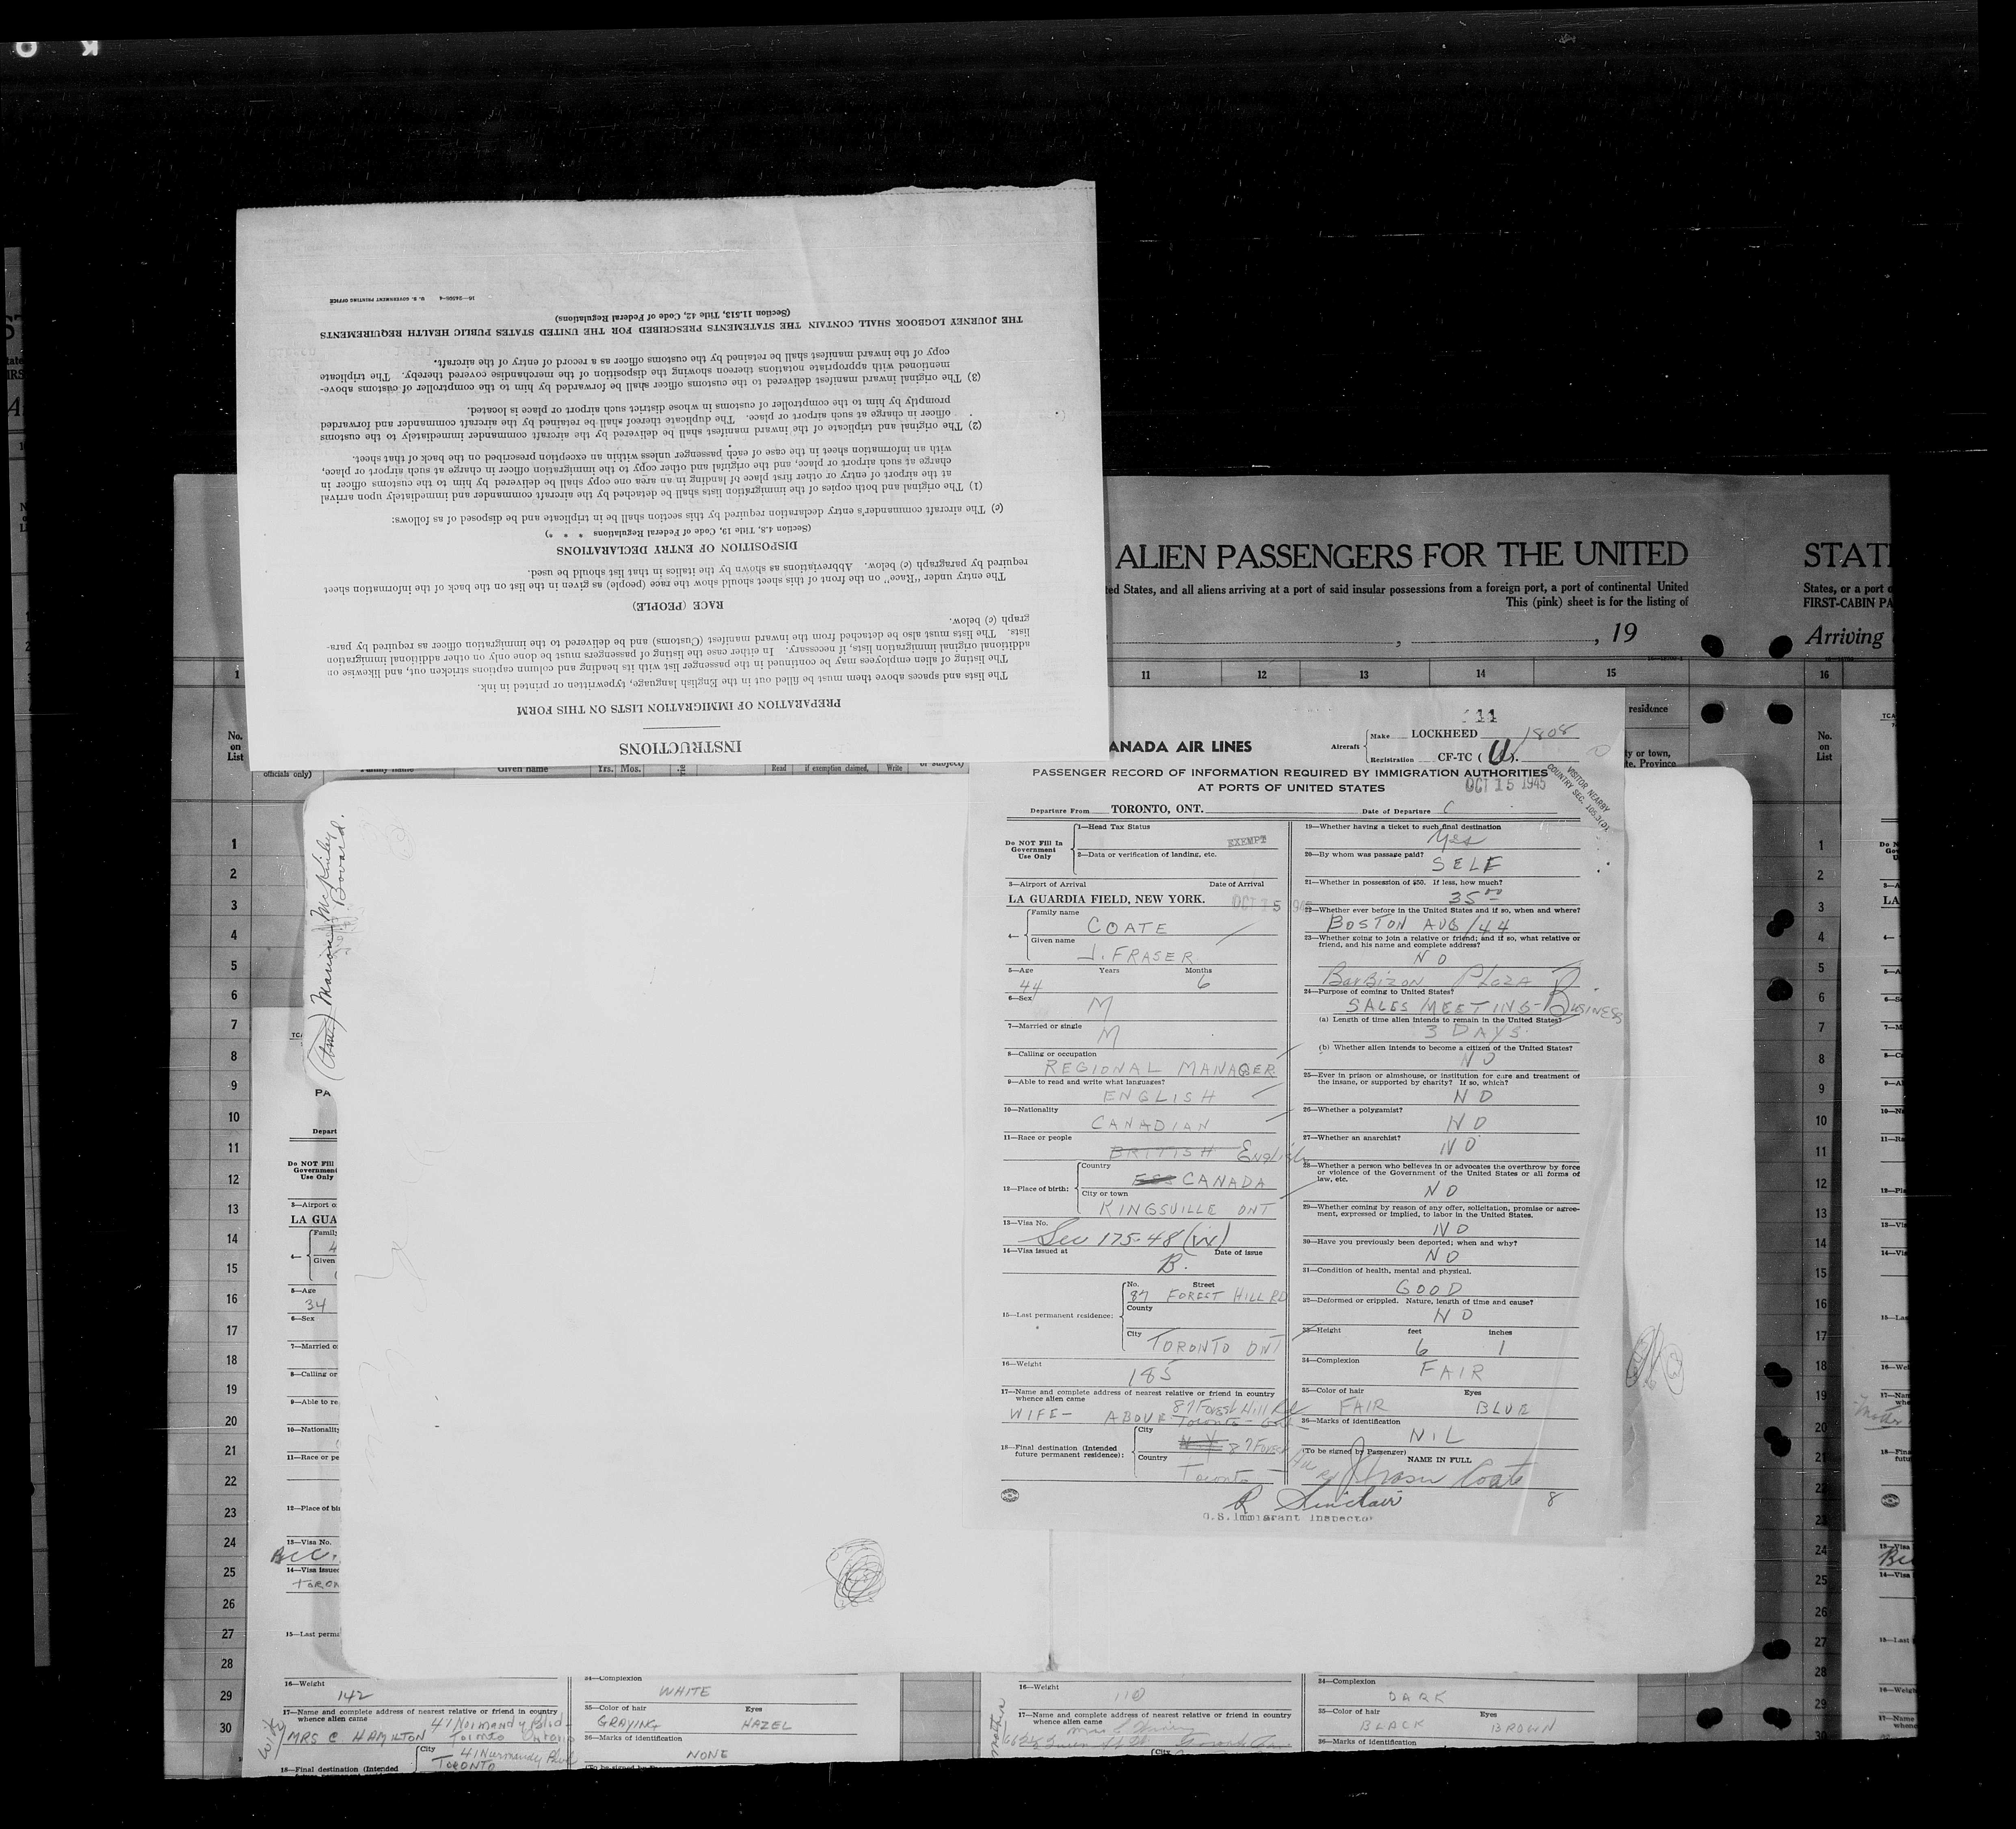 INSTRUCTIONS
PREPARATION OF IMMIGRATION LISTS ON THIS FORM
The lists and spaces above them must be filled out in the English language, typewritten or printed in ink.
The listing of alien employees may be continued in the passenger list with its heading and column captions stricken out, and likewise on
additional original immigration lists, if necessary. In either case the listing of passengers must be done only on other additional immigration
lists. The lists must also be detached from the inward manifest (Customs) and be delivered to the immigration officer as required by para-
graph (c) below.
RACE (PEOPLE)
The entry under "Race" on the front of this sheet should show the race (people) as given in the list on the back of the information sheet
required by paragraph (c) below. Abbreviations as shown by the italics in that list should be used.
DISPOSITION OF ENTRY DECLARATIONS
(Section 4.8, Title 19, Code of Federal Regulations * * *)
(c) The aircraft commander's entry declaration required by this section shall be in triplicate and be disposed of as follows:
(1) The original and both copies of the immigration lists shall be detached by the aircraft commander and immediately upon arrival
at the airport of entry or other first place of landing in an area one copy shall be delivered by him to the customs officer in
charge at such airport or place, and the original and other copy to the immigration officer in charge at such airport or place,
with an information sheet in the case of each passenger unless within an exception prescribed on the back of that sheet.
(2) The original and triplicate of the inward manifest shall be delivered by the aircraft commander immediately to the customs
officer in charge at such airport or place. The duplicate thereof shall be retained by the aircraft commander and forwarded
promptly by him to the comptroller of customs in whose district such airport or place is located.
(3) The original inward manifest delivered to the customs officer shall be forwarded by him to the comptroller of customs above-
mentioned with appropriate notations thereon showing the disposition of the merchandise covered thereby. The triplicate
copy of the inward manifest shall be retained by the customs officer as a record of entry of the aircraft.
THE JOURNEY LOGBOOK SHALL CONTAIN THE STATEMENTS PRESCRIBED FOR THE UNITED STATES PUBLIC HEALTH REQUIREMENTS
(Section 11.513, Title 42, Code of Federal Regulations)
U. S. GOVERNMENT PRINTING OFFICE
ALIEN PASSENGERS FOR THE UNITED
ted States, and all aliens arriving at a port of said insular possessions from a foreign port, a port of continental United
This (pink) sheet is for the listing of
, 19
11 12 13 14 15
STAT
States, or a port o
FIRST-CABIN PA
Arriving
16
residence
ty or town,
te, Province
No.
on
List
officials only) Family name Given name Yrs. Mos. Read if exemption claimed, Write or subject)
11
ANADA AIR LINES
Aircraft
Make LOCKHEED 1808
Registration CF-TC (U).
PASSENGER RECORD OF INFORMATION REQUIRED BY IMMIGRATION AUTHORITIES
AT PORTS OF UNITED STATES
OCT 15 1945
VISITOR NEARBY
COUNTRY SEC.
Departure From TORONTO, ONT.
Date of Departure
Do NOT Fill In
Government
Use Only
1—Head Tax Status
EXEMPT
2—Data or verification of landing, etc.
3—Airport of Arrival Date of Arrival
LA GUARDIA FIELD, NEW YORK. OCT 15 194
4—
Family name
COATE
Given name
J. FRASER
5—Age Years Months
44 6
6—Sex
M
7—Married or single
M
8—Calling or occupation
REGIONAL MANAGER
9—Able to read and write what languages?
ENGLISH
10—Nationality
CANADIAN
11—Race or people
BRITISH English
12—Place of birth:
Country
CANADA
City or town
KINGSVILLE ONT
13—Visa No.
Sec 175.48 (ix)
14—Visa issued at Date of issue
B.
15—Last permanent residence:
No. Street
87 FOREST HILL RD
County
City
TORONTO ONT
16—Weight
185
17—Name and complete address of nearest relative or friend in country
whence alien came
87 Forest Hill Rd
WIFE— ABOVE Toronto
18—Final destination (Intended
future permanent residence):
City
N.Y. 87 Forest Hill Rd
Country
Toronto
19—Whether having a ticket to such final destination
Yes
20—By whom was passage paid?
SELF
21—Whether in possession of $50. If less, how much?
35 00
22—Whether ever before in the United States and if so, when and where?
BOSTON AUG/44
23—Whether going to join a relative or friend; and if so, what relative or
friend, and his name and complete address?
NO
Barbizon Plaza
24—Purpose of coming to United States?
SALES MEETING - BUSINESS
(a) Length of time alien intends to remain in the United States?
3 DAYS
(b) Whether alien intends to become a citizen of the United States?
NO
25—Ever in prison or almshouse, or institution for care and treatment of
the insane, or supported by charity? If so, which?
NO
26—Whether a polygamist?
NO
27—Whether an anarchist?
NO
28—Whether a person who believes in or advocates the overthrow by force
or violence of the Government of the United States or all forms of
law, etc.
NO
29—Whether coming by reason of any offer, solicitation, promise or agree-
ment, expressed or implied, to labor in the United States.
NO
30—Have you previously been deported; when and why?
NO
31—Condition of health, mental and physical.
GOOD
32—Deformed or crippled. Nature, length of time and cause?
NO
33—Height feet inches
6 1
34—Complexion
FAIR
35—Color of hair Eyes
FAIR BLUE
36—Marks of identification
NIL
(To be signed by Passenger)
NAME IN FULL
J Fraser Coate
8
R Sinclair
U.S. Immigrant Inspector
16—Weight
142
17—Name and complete address of nearest relative or friend in country
whence alien came
Wife
MRS C HAMILTON 41 Normandy Blvd
Toronto Ontario
18—Final destination (Intended
City
41 Normandy Blvd
TORONTO
34—Complexion
WHITE
35—Color of hair Eyes
GRAYING HAZEL
36—Marks of identification
NONE
16—Weight
110
17—Name and complete address of nearest relative or friend in country
whence alien came
mother
34—Complexion
DARK
35—Color of hair Eyes
BLACK BROWN
36—Marks of identification